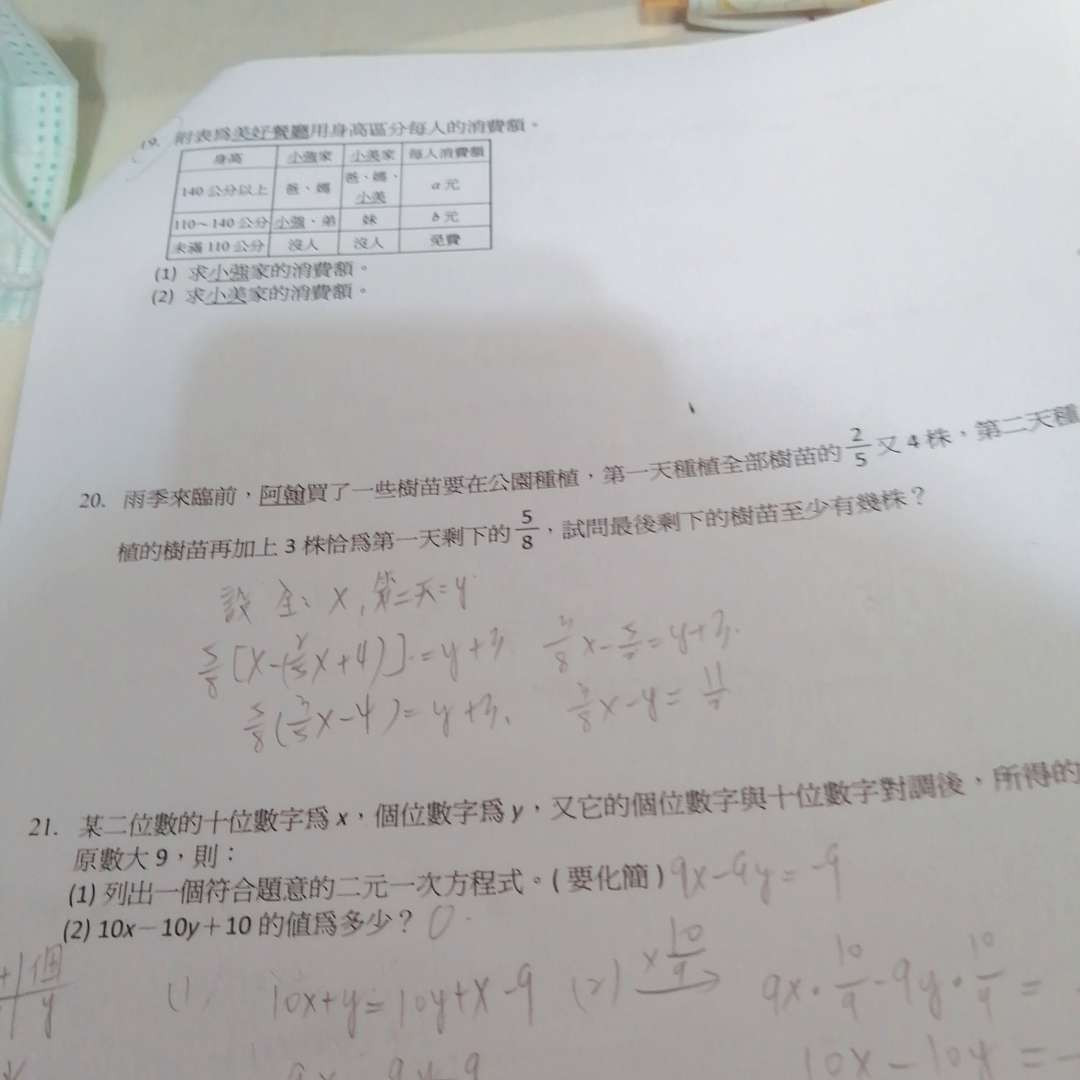 19. 附表為美好餐廳用身高區分每人的消費額。
身高 小強家 小美家 每人消費額
140 公分以上 爸、媽 爸、媽、小美 a 元
110～140 公分 小強、弟 妹 b 元
未滿 110 公分 沒人 沒人 免費
(1) 求小強家的消費額。
(2) 求小美家的消費額。
20. 雨季來臨前，阿翰買了一些樹苗要在公園種植，第一天種植全部樹苗的 2/5 又 4 株，第二天種
植的樹苗再加上 3 株恰為第一天剩下的 5/8，試問最後剩下的樹苗至少有幾株？
設 全: x, 第二天=y
5/8[x-(2/5x+4)]=y+3 3/8x-5/2=y+3
5/8(3/5x-4)=y+3 3/8x-y=11/2
21. 某二位數的十位數字為 x，個位數字為 y，又它的個位數字與十位數字對調後，所得的
原數大 9，則：
(1) 列出一個符合題意的二元一次方程式。(要化簡) 9x-9y=-9
(2) 10x－10y＋10 的值為多少？ 0
十 個
y
(1) 10x+y=10y+x-9 (2) ×10/9 9x·10/9-9y·10/9=
9x 9y-9 10x-10y=-